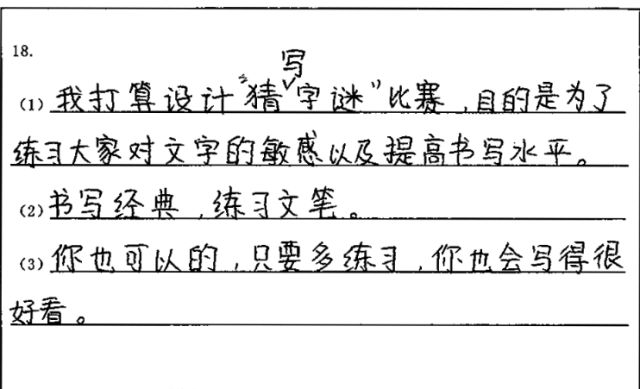 18.
写
(1) 我打算设计“猜字谜”比赛，目的是为了
练习大家对文字的敏感以及提高书写水平。
(2) 书写经典，练习文笔。
(3) 你也可以的，只要多练习，你也会写得很
好看。